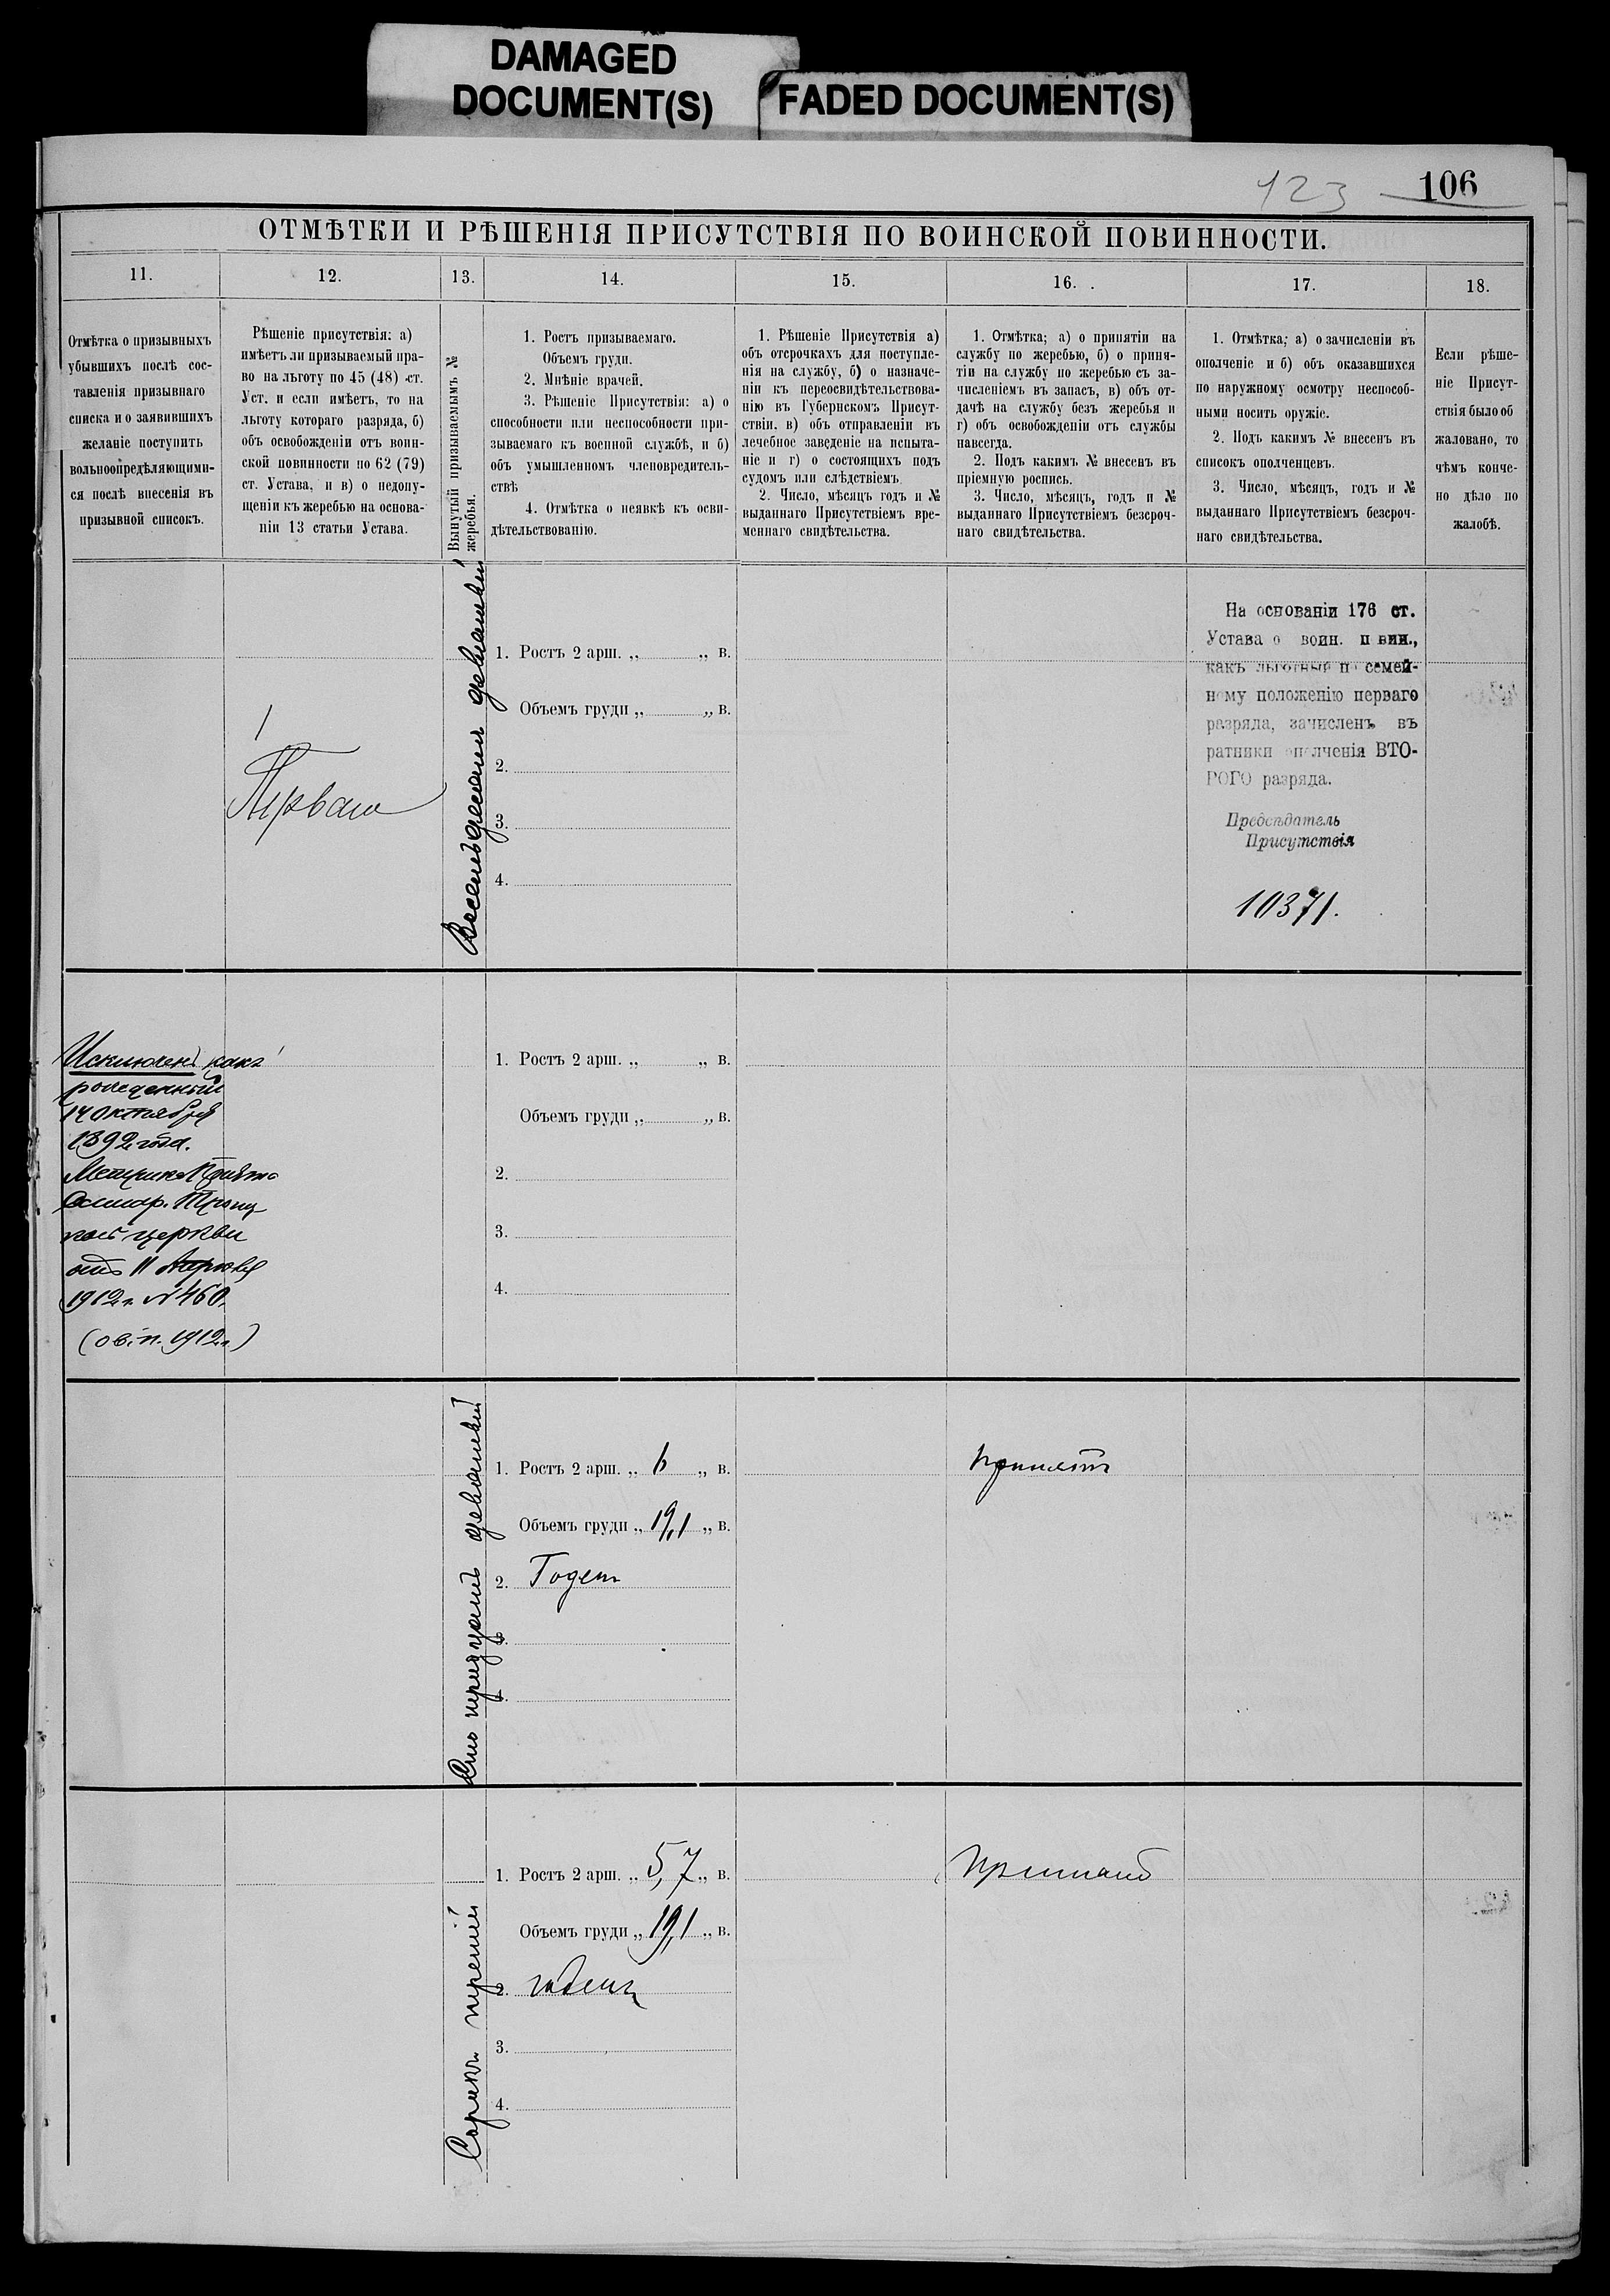 DAMAGED
DOCUMENT(S)
FADED DOCUMENT(S)
123
106
ОТМѢТКИ И РѢШЕНІЯ ПРИСУТСТВІЯ ПО ВОИНСКОЙ ПОВИННОСТИ.
11.
Отмѣтка о призывныхъ
убывшихъ послѣ сос-
тавленія призывнаго
списка и о заявившихъ
желаніе поступить
вольноопредѣляющими-
ся послѣ внесенія въ
призывной списокъ.
12.
Рѣшеніе присутствія: а)
имѣетъ ли призываемый пра-
во на льготу по 45 (48) ст.
Уст. и если имѣетъ, то на
льготу котораго разряда, б)
объ освобожденіи отъ воин-
ской повинности по 62 (79)
ст. Устава, и в) о недопу-
щеніи къ жеребью на основа-
ніи 13 статьи Устава.
13.
Вынутый призываемымъ №
жеребья.
14.
1. Ростъ призываемаго.
Объемъ груди.
2. Мнѣніе врачей.
3. Рѣшеніе Присутствія: а) о
способности или неспособности при-
зываемаго къ военной службѣ, и б)
объ умышленномъ членовредитель-
ствѣ
4. Отмѣтка о неявкѣ къ осви-
дѣтельствованію.
15.
1. Рѣшеніе Присутствія а)
объ отсрочкахъ для поступле-
нія на службу, б) о назначе-
ніи къ переосвидѣтельствова-
нію въ Губернскомъ Присут-
ствіи. в) объ отправленіи въ
лечебное заведеніе на испыта-
ніе и г) о состоящихъ подъ
судомъ или слѣдствіемъ.
2. Число, мѣсяцъ годъ и №
выданнаго Присутствіемъ вре-
меннаго свидѣтельства.
16.
1. Отмѣтка; а) о принятіи на
службу по жеребью, б) о приня-
тіи на службу по жеребью съ за-
численіемъ въ запасъ, в) объ от-
дачѣ на службу безъ жеребья и
г) объ освобожденіи отъ службы
навсегда.
2. Подъ какимъ № внесенъ въ
пріемную роспись.
3. Число, мѣсяцъ, годъ и №
выданнаго Присутствіемъ безсроч-
наго свидѣтельства.
17.
1. Отмѣтка; а) о зачисленіи въ
ополченіе и б) объ оказавшихся
по наружному осмотру неспособ-
ными носить оружіе.
2. Подъ какимъ № внесенъ въ
списокъ ополченцевъ.
3. Число, мѣсяцъ, годъ и №
выданнаго Присутствіемъ безсроч-
наго свидѣтельства.
18.
Если рѣше-
ніе Присут-
ствія было об
жаловано, то
чѣмъ конче-
но дѣло по
жалобѣ.
Первая
Восемьдесятъ девятый
1. Ростъ 2 арш. „ „ в.
Объемъ груди „ „ в.
2.
3.
4.
На основаніи 176 ст.
Устава о воин. п вин.,
какъ льготный п семей-
ному положенію перваго
разряда, зачисленъ въ
ратники ополченія ВТО-
РОГО разряда.
Предсѣдатель
Присутствія
10371.
Исключенъ какъ
рожденный
14 октября
1892 года.
церкви
отъ 11 Апрѣля
1912 г. № 460.
1. Ростъ 2 арш. „ „ в.
Объемъ груди „ „ в.
2.
3.
4.
Сто тридцать девятый
1. Ростъ 2 арш. „ 6 „ в.
Объемъ груди „ 19,1 „ в.
2. Годенъ
3.
4.
принятъ
Сорокъ третій
1. Ростъ 2 арш. „ 5,7 „ в.
Объемъ груди „ 19,1 „ в.
2. годенъ
3.
4.
принятъ